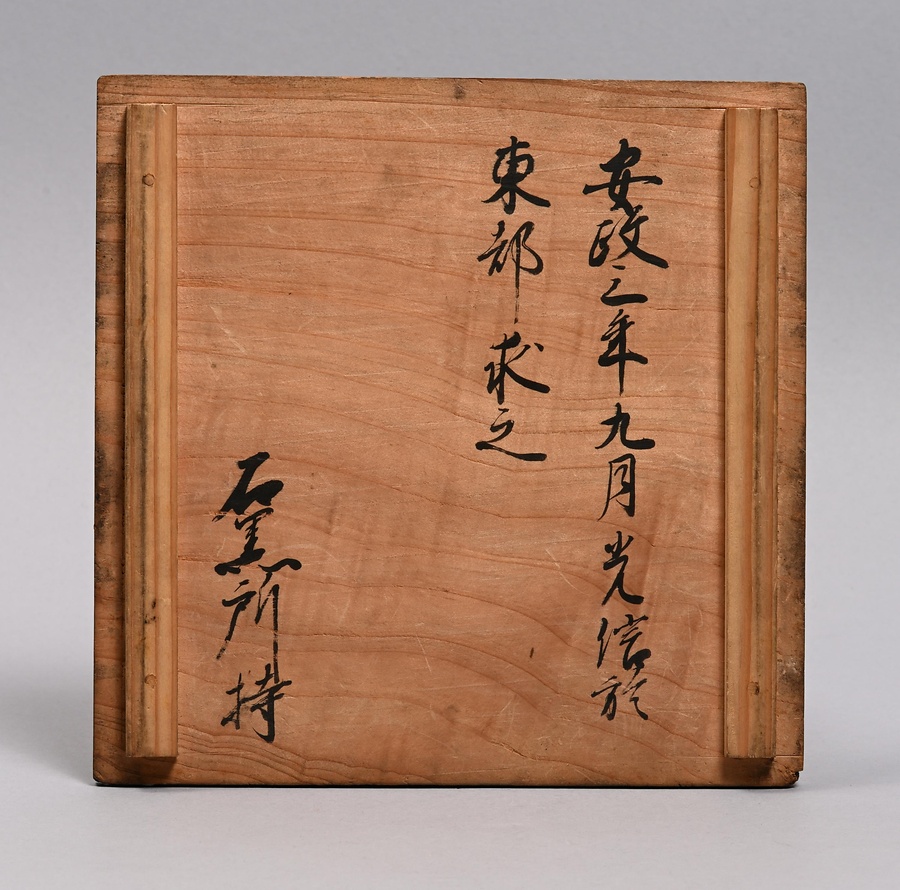 安政三年九月光信於
東都求之
石黒所持